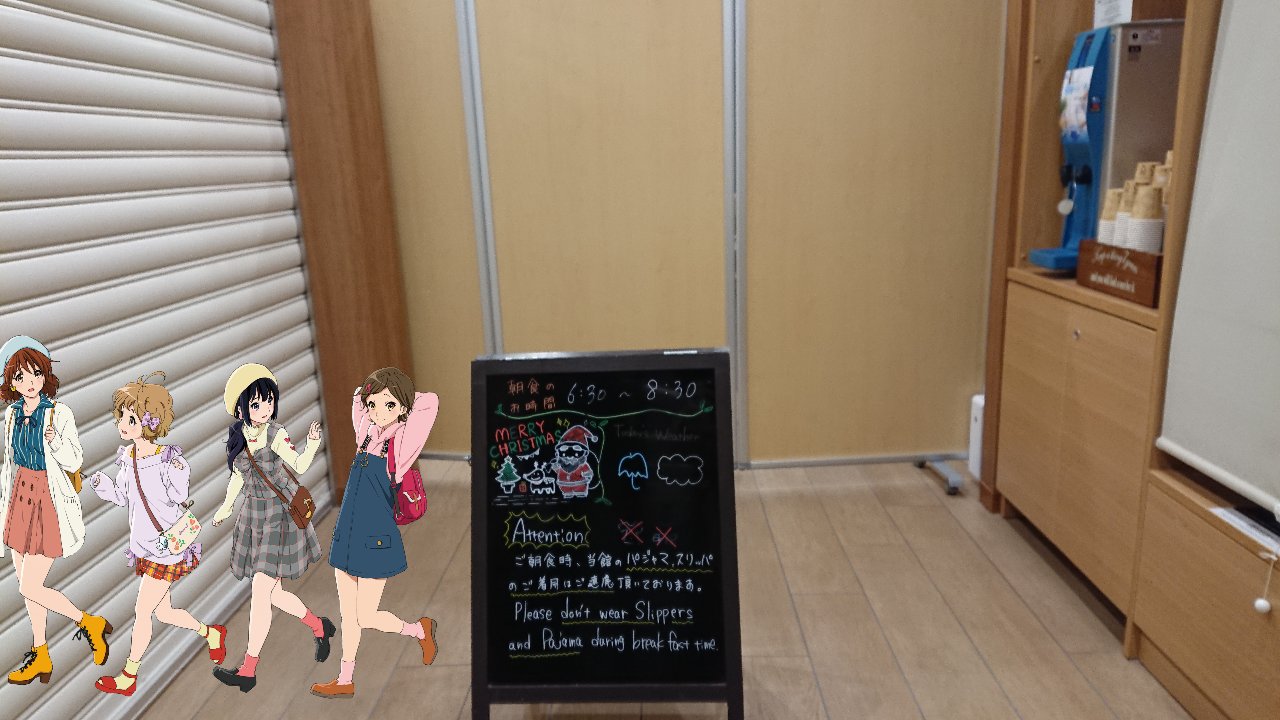 朝食の
お時間
6:30 ~ 8:30
MERRY
CHRISTMAS
Today's Weather
Attention
ご朝食時、当館のパジャマ、スリッパ
のご着用はご遠慮頂いております。
Please don't wear Slippers
and Pajama during breakfast time.